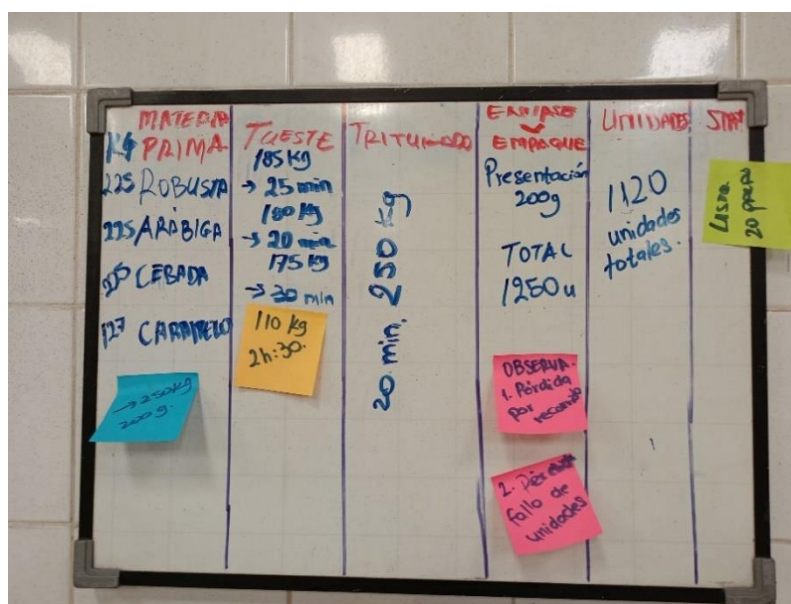 MATERIA
KG PRIMA
225 ROBUSTA
225 ARÁBIGA
CEBADA
127 CARAMELO
→ 250kg
200g.
TUESTE
185 kg
→ 25 min
180 kg
→ 20 min
175 kg
→ 30 min
110 kg
2h:30.
TRITURADO
20 min, 250 kg
ENVASE
EMPAQUE
Presentación
200g
TOTAL
1250u
OBSERVA.
1. Pérdida
por
recorrido
2.
fallo de
unidades
UNIDADES
1120
unidades
totales.
20